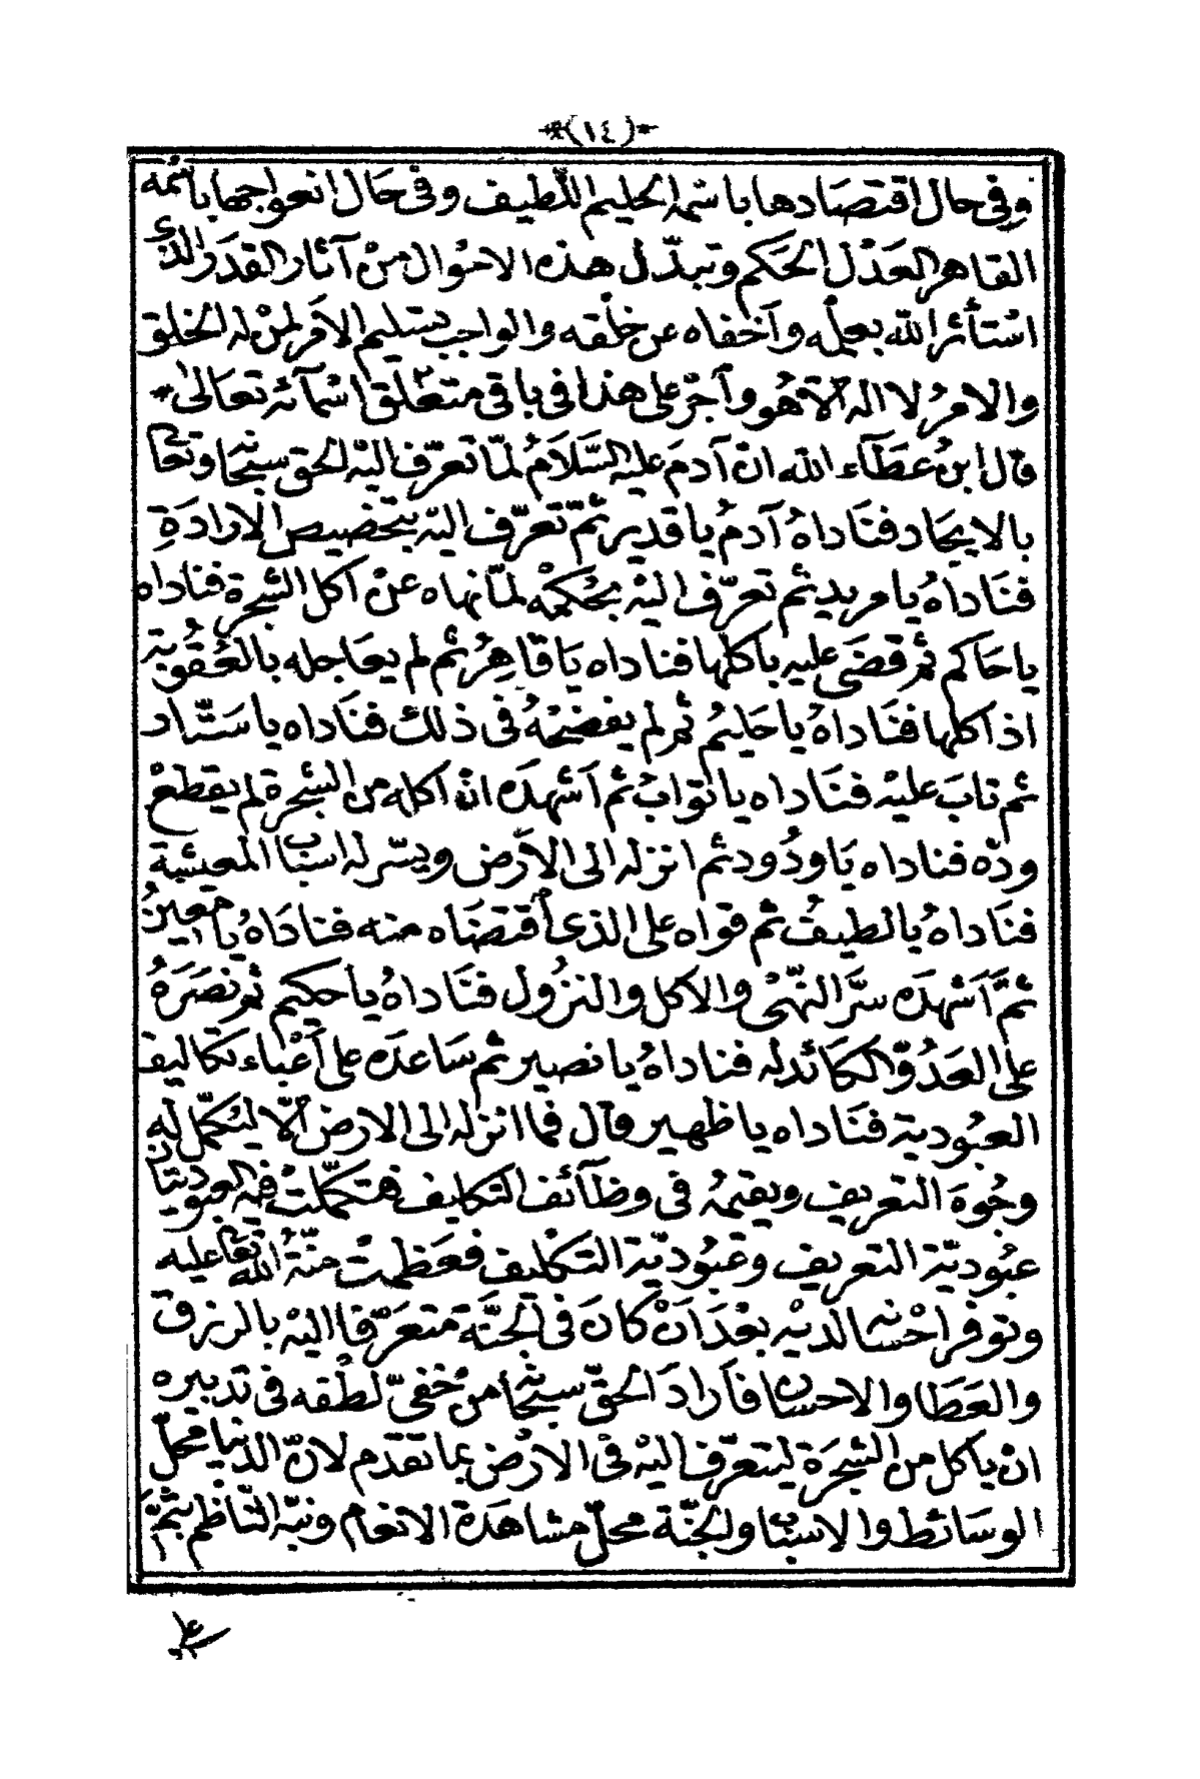 *(١٤)*
وفي حال اقتصادها باسمه الحليم اللطيف وفي حال انعواجها باسمه
القاهر العدل الحكم وتبدّل هذه الاحوال من آثار القدر الذي
استأثر الله بعلمه وأخفاه عن خلقه والواجب تسليم الأمر لمن له الخلق
والامر لا اله الا هو وأجر على هذا في باقي متعلق اسمآئه تعالى *
قال ابن عطآء الله ان آدم عليه السلام لمّا تعرّف اليه الحق سبحانه وتعالى
بالايجاد فناداه آدم يا قدير ثمّ تعرّف اليه بتخصيص الارادة
فناداه يا مريد ثم تعرّف اليه بحكمه لمّا نهاه عن اكل الشجرة فناداه
يا حاكم ثم قضى عليه بأكلها فناداه يا قاهر ثم لم يعاجله بالعقوبة
اذ اكلها فناداه يا حليم ثم لم يفضحه في ذلك فناداه يا ستّار
ثم تاب عليه فناداه يا تواب ثم أشهده انّ اكله من الشجرة لم يقطع
ودّه فناداه يا ودود ثم انزله الى الأرض ويسّر له اسباب المعيشة
فناداه يا لطيف ثم قواه على الذي اقتضاه منه فناداه يا معين
ثمّ أشهده سرّ النّهي والاكل والنزول فناداه يا حكيم ثم نصره
على العدوّ المكائد له فناداه يا نصير ثم ساعده على أعباء تكاليف
العبودية فناداه يا ظهير وقال فما انزله الى الارض الّا ليكمّل له
وجوه التعريف ويقيمه في وظآئف التكليف فتكمّلت فيه العبوديتان
عبوديّة التعريف وعبوديّة التكليف فعظمت منّة الله تعالى عليه
وتوفر احسانه لديه بعد أن كان في الجنّة متعرّفا اليه بالرزق
والعطا والاحسان فأراد الحقّ سبحانه من خفيّ لطفه في تدبيره
ان يأكل من الشجرة ليتعرّف اليه في الارض بما تقدم لانّ الدنيا محلّ
الوسائط والاسباب والجنّة محلّ مشاهدة الانعام ونبّه النّاظم بثمّ
على